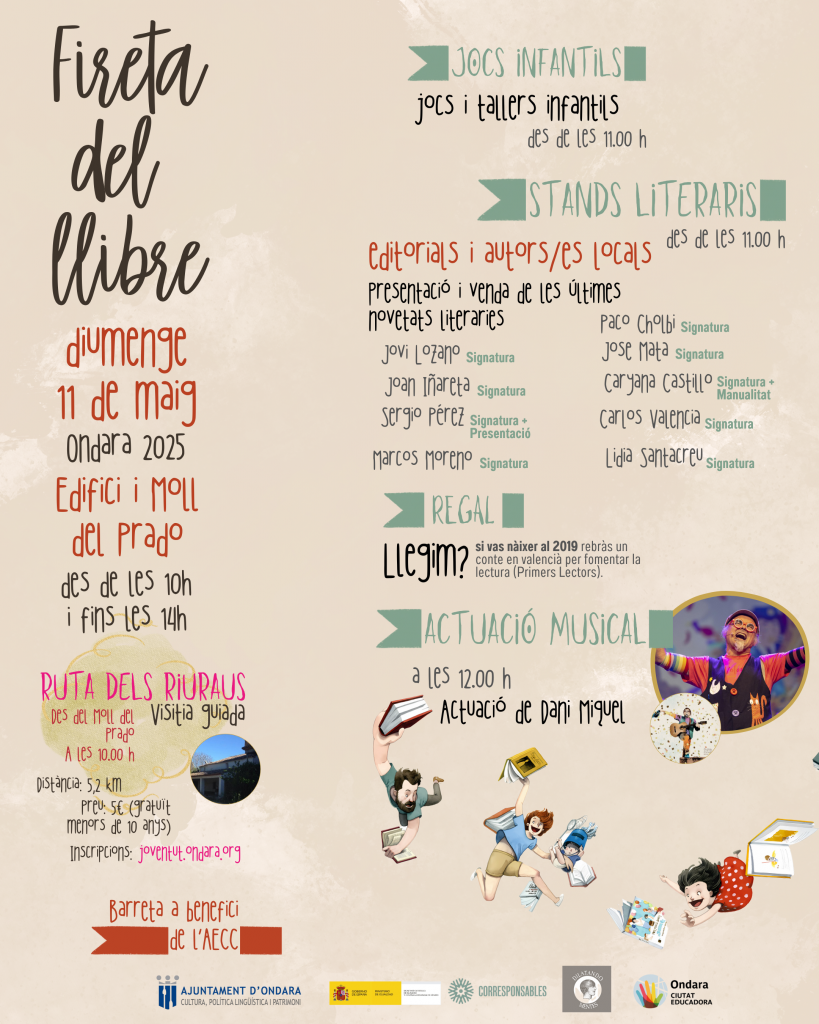 Fireta
del
llibre
diumenge
11 de maig
Ondara 2025
Edifici i Moll
del Prado
des de les 10h
i fins les 14h
RUTA DELS RIURAUS
Des del Moll del
Prado
Visitia guiada
A les 10.00 h
Distància: 5,2 km
Preu: 5€ (gratuït
menors de 10 anys)
Inscripcions: joventut.ondara.org
Barreta a benefici
de l'AECC
JOCS INFANTILS
jocs i tallers infantils
des de les 11.00 h
STANDS LITERARIS
des de les 11.00 h
editorials i autors/es locals
Presentació i venda de les últimes
novetats literaries
Jovi Lozano Signatura
Joan Iñareta Signatura
Sergio Pérez Signatura +
Presentació
Marcos Moreno Signatura
Paco Cholbi Signatura
Jose Mata Signatura
Caryana Castillo Signatura +
Manualitat
Carlos Valencia Signatura
Lidia Santacreu Signatura
REGAL
Llegim?
si vas nàixer al 2019 rebràs un
conte en valencià per fomentar la
lectura (Primers Lectors).
ACTUACIÓ MUSICAL
a les 12.00 h
Actuació de Dani Miquel
AJUNTAMENT D'ONDARA
CULTURA, POLÍTICA LINGÜÍSTICA I PATRIMONI
GOBIERNO
DE ESPAÑA
MINISTERIO
DE IGUALDAD
CORRESPONSABLES
DILATANDO
MENTES
Ondara
CIUTAT
EDUCADORA